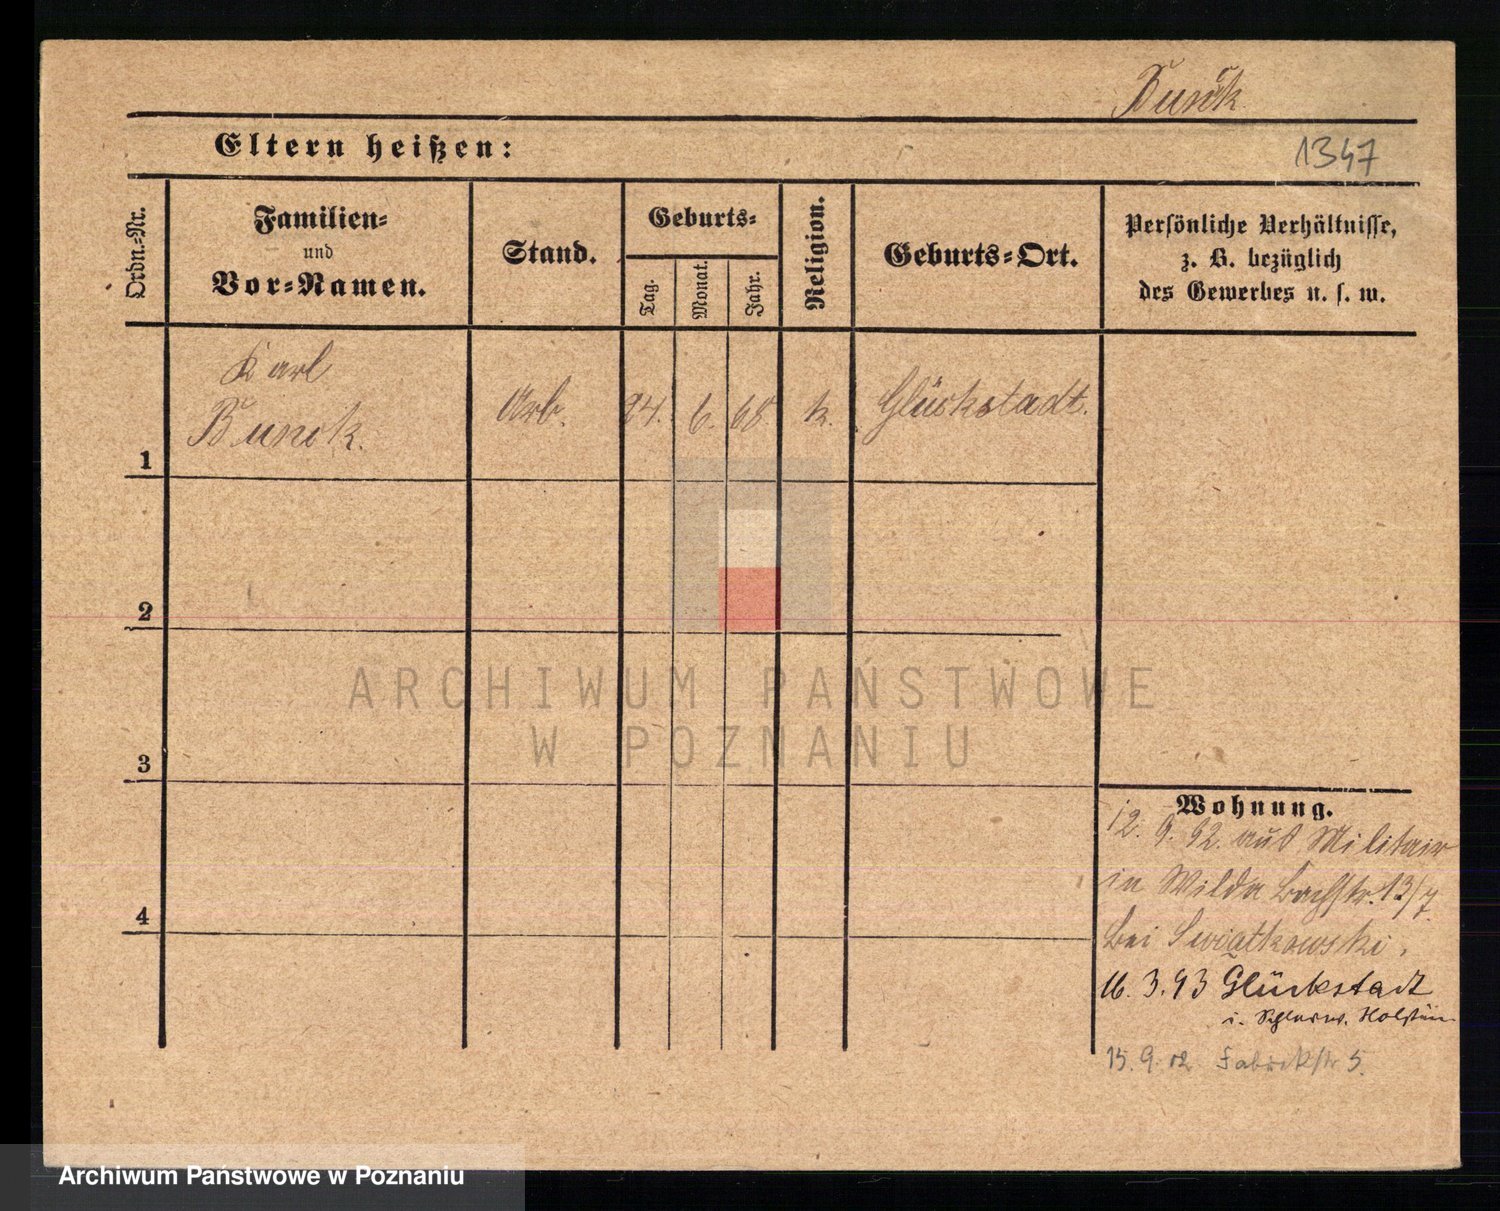 Bunck
Eltern heißen:
1347
Ordn.-Nr.
Familien-
und
Vor-Namen.
Stand.
Geburts-
Tag.
Monat.
Jahr.
Religion.
Geburts-Ort.
Persönliche Verhältnisse,
z. B. bezüglich
des Gewerbes u. s. w.
Karl
Bunck.
Arb.
24. 6. 68.
k.
Glückstadt.
1
2
3
4
ARCHIWUM PAŃSTWOWE
W POZNANIU
Wohnung.
12. 9. 92. aus Militair
in Wilda Bachstr. 13/7.
bei Swiątkowski.
16. 3. 93 Glückstadt
i. Schlesw. Holstein
15. 9. 02 Fabrikstr 5.
Archiwum Państwowe w Poznaniu